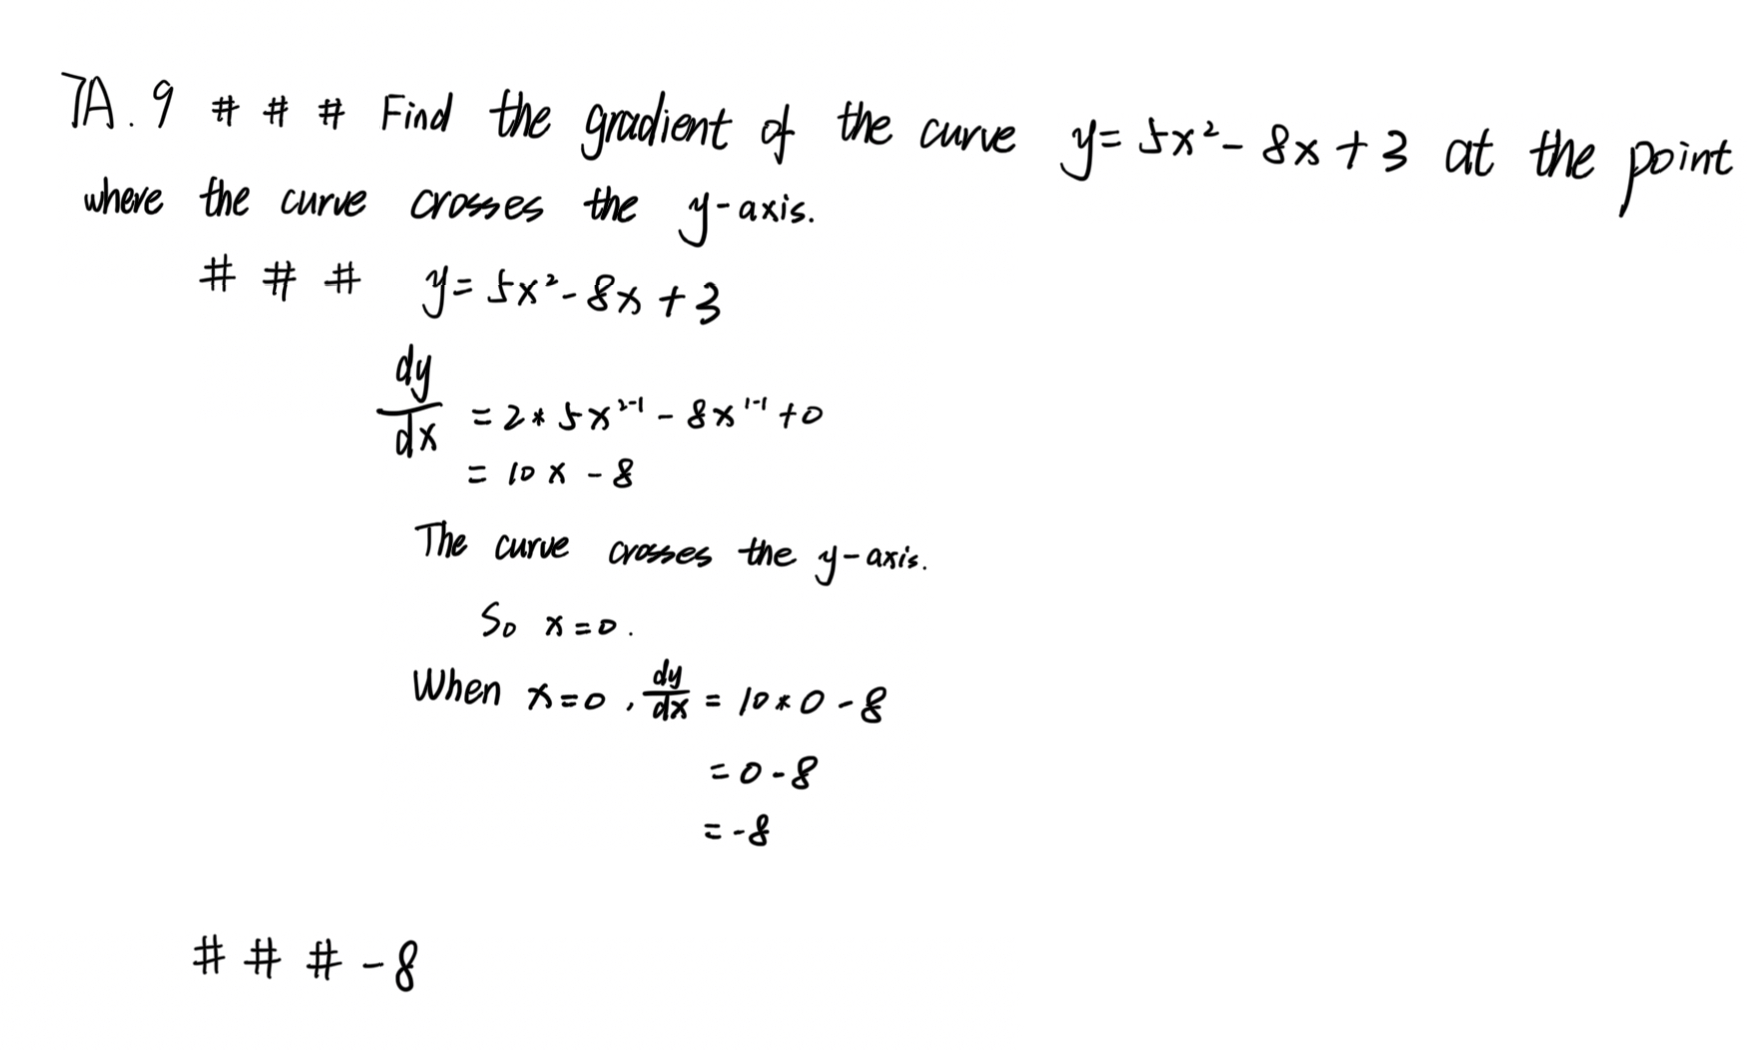 7A.9 # # # Find the gradient of the curve y = 5x² - 8x + 3 at the point
where the curve crosses the y-axis.
# # # y = 5x² - 8x + 3
dy/dx = 2 * 5x²⁻¹ - 8x¹⁻¹ + 0
= 10x - 8
The curve crosses the y-axis.
So x = 0.
When x = 0, dy/dx = 10 * 0 - 8
= 0 - 8
= -8
# # # -8